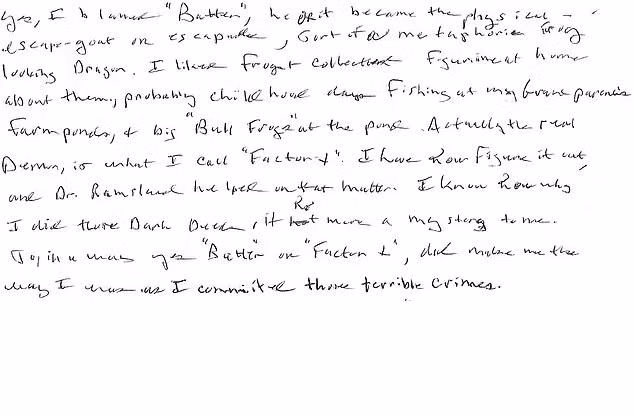 yes, I blamed "Batter", he or it became the physical -
escape-goat on escapade, sort of a metaphoric frog
looking Dragon. I liked frogs & collected figurine at home
about them, probably childhood days fishing at my Grand parents
farm ponds, & big "Bull Frogs" at the pond. Actually the real
Demon, is what I call "Factor X". I have now figure it out
and Dr. Ramsland helped on that matter. I know now why
I did those Dark Deeds, it No more a mystery to me.
So, in a way yes "Batter" or "Factor X", did make me the
way I was as I committed those terrible crimes.